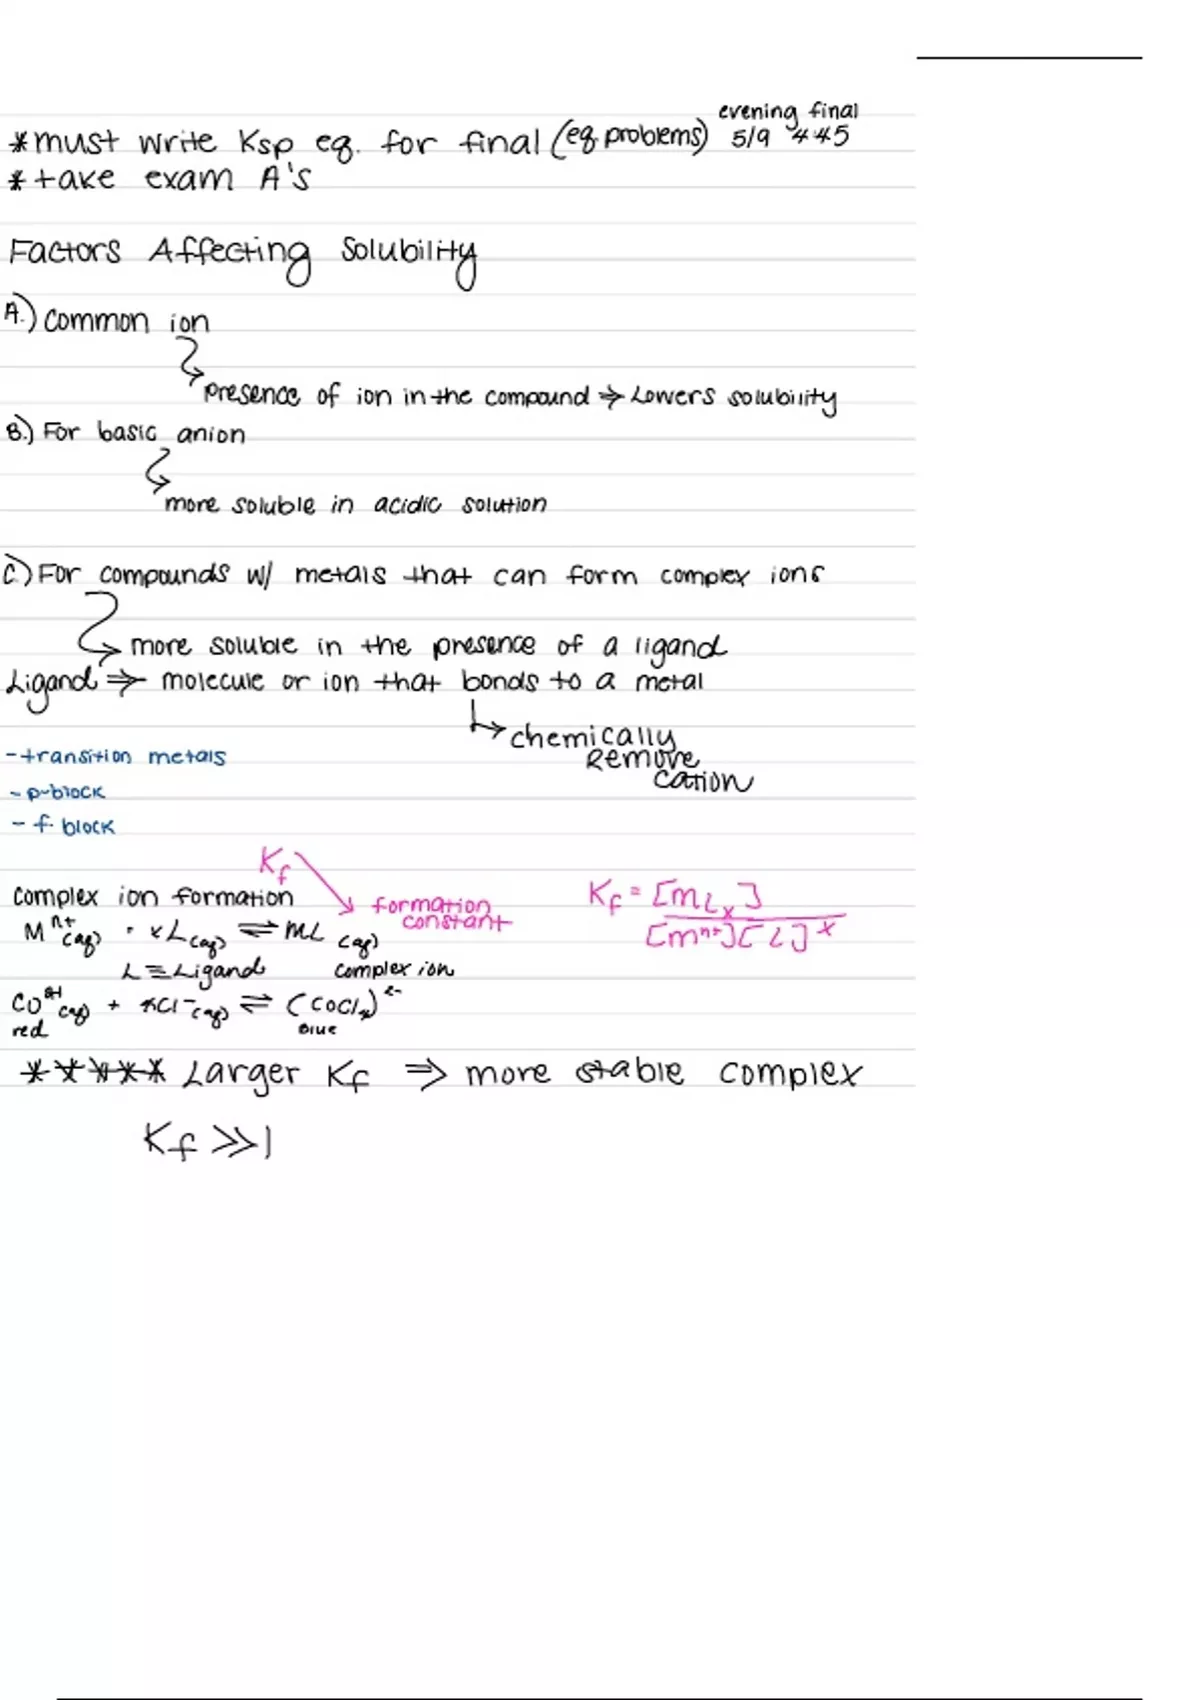 evening final
*must write Ksp eq. for final (eq problems) 5/9 445
*take exam A's
Factors Affecting Solubility
A.) Common ion
presence of ion in the compound → Lowers solubility
B.) For basic anion
more soluble in acidic solution
C.) For compounds w/ metals that can form complex ions
more soluble in the presence of a ligand
Ligand ⇒ molecule or ion that bonds to a metal
chemically
Remove
cation
-transition metals
- p-block
- f block
Kf
complex ion formation
formation
constant
Kf = [MLx] / [Mn+][L]^x
M^n+(aq) · xL(aq) ⇌ ML (aq)
L ≡ Ligand
complex ion
(aq) + Cl^-(aq) ⇌
red
Blue
***** Larger Kf ⇒ more stable complex
Kf >> 1